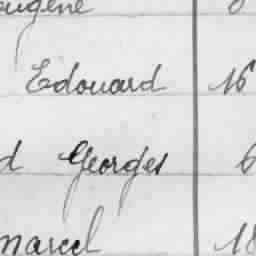 Eugène
Edouard 16
d Georges 6
marcel 18